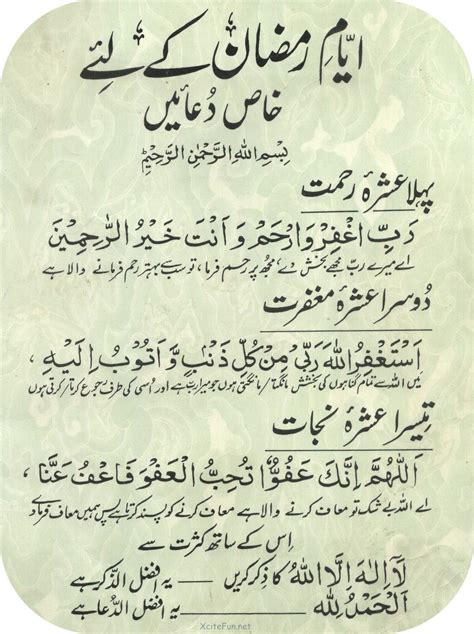 ایّامِ رمضان کے لئے
خاص دُعائیں
بِسْمِ اللهِ الرَّحْمٰنِ الرَّحِيْمِ
پہلا عشرۂ رحمت
رَبِّ اغْفِرْ وَارْحَمْ وَاَنْتَ خَيْرُ الرّٰحِمِيْنَ
اے میرے ربّ مجھے بخش دے، مجھ پر رحم فرما، تو سب سے بہتر رحم فرمانے والا ہے
دُوسرا عشرۂ مغفرت
اَسْتَغْفِرُ اللهَ رَبِّیْ مِنْ كُلِّ ذَنْبٍ وَّاَتُوْبُ اِلَيْهِ ،
میں اللہ سے تمام گناہوں کی بخشش مانگتا/مانگتی ہوں جو میرا ربّ ہے اور اُسی کی طرف رجوع کرتا/کرتی ہوں
تیسرا عشرۂ نجات
اَللّٰهُمَّ اِنَّكَ عَفُوٌّ تُحِبُّ الْعَفْوَ فَاعْفُ عَنَّا ،
اے اللہ بے شک تو معاف کرنے والا ہے معاف کرنے کو پسند کرتا ہے پس ہمیں معاف فرما دے
اِس کے ساتھ کثرت سے
لَآ اِلٰهَ اِلَّا اللهُ کا ذکر کریں — یہ افضل الذّکر ہے
اَلْحَمْدُ لِلّٰهِ — یہ افضل الدُّعا ہے
XciteFun.net